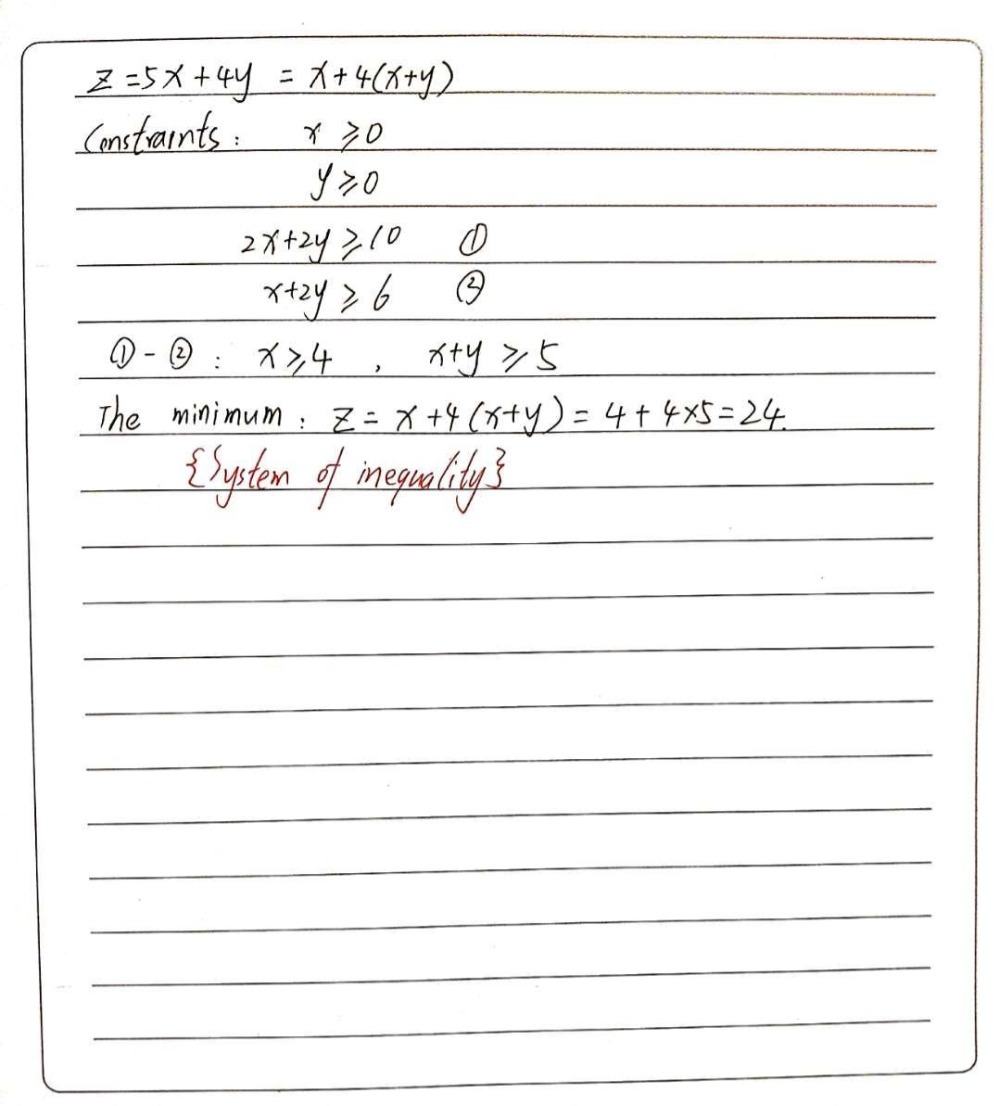 z =5x+4y = x+4(x+y)
Constraints: x ⩾0
y⩾0
2x+2y⩾10 ①
x+2y⩾6 ②
①-②: x⩾4, x+y⩾5
The minimum: z= x+4(x+y)=4+4×5=24.
{System of inequality}